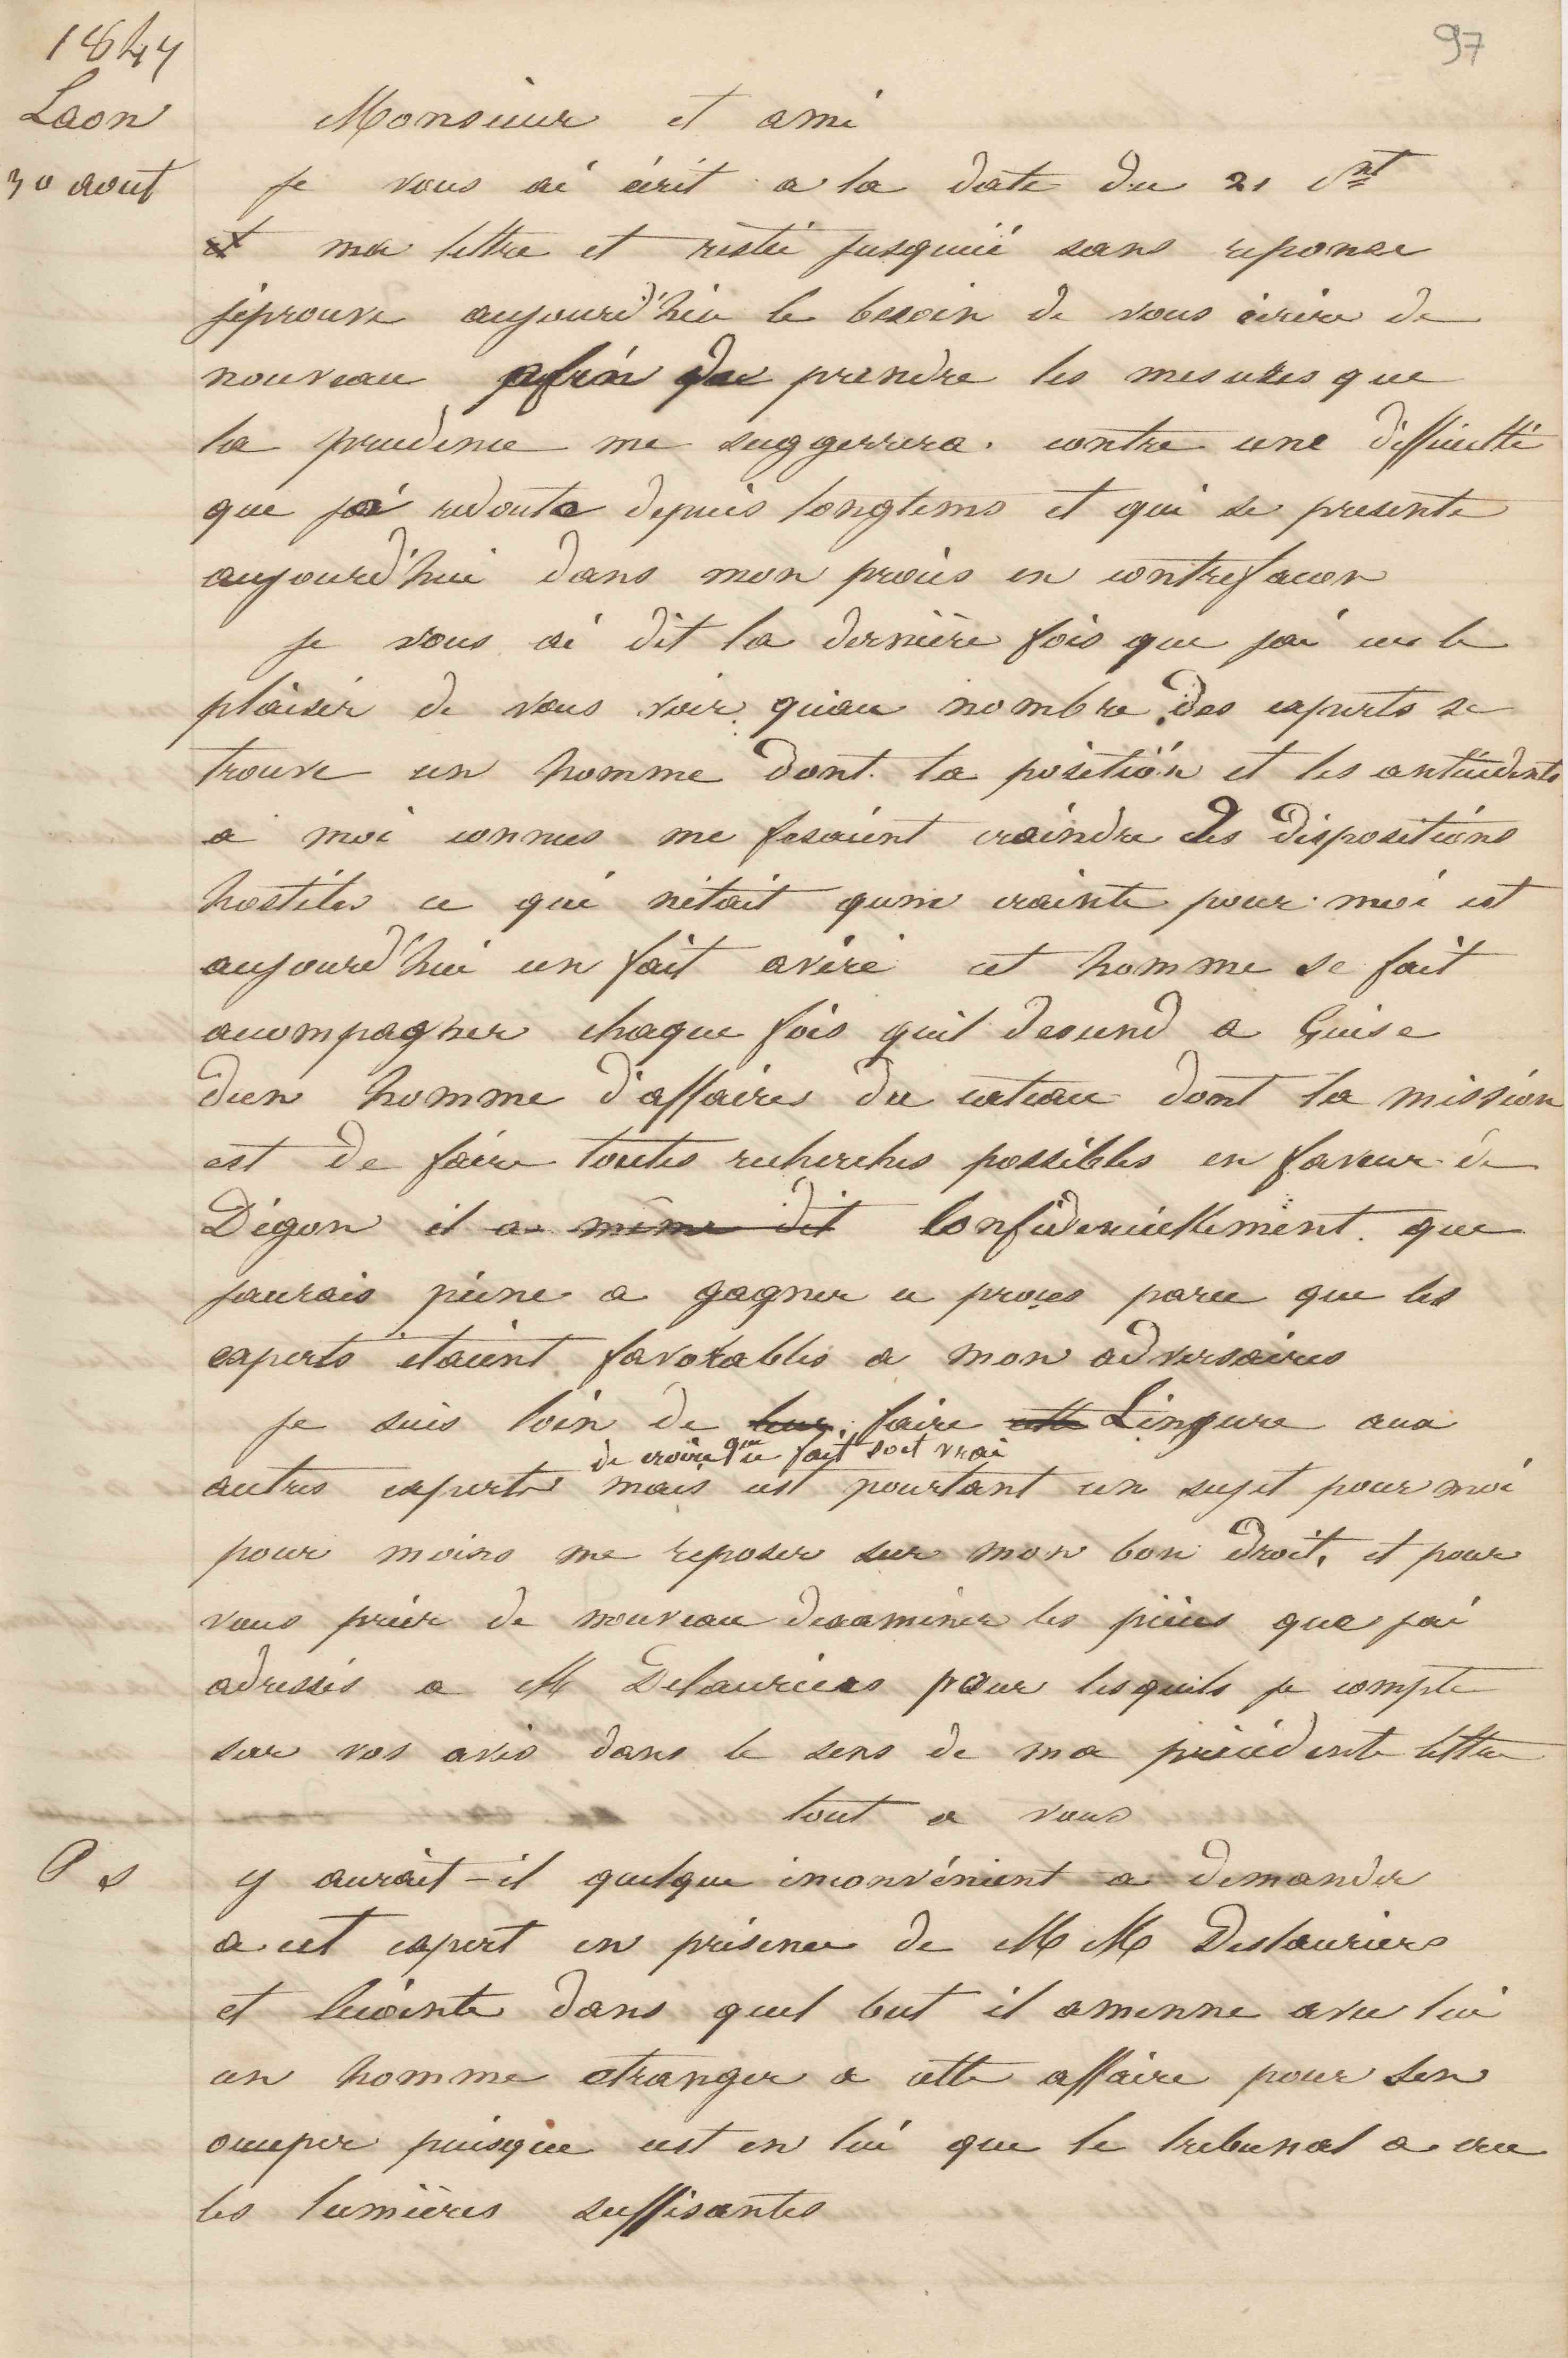 1847
97
Laon
Monsieur et ami
30 aout
je vous ai écrit a la date du 21 Ct
et ma lettre et restée jusquici sans reponse
jéprouve aujourd'hui le besoin de vous écrire de
nouveau afin de prendre les mesures que
la prudence me suggerrera. contre une difficulté
que jai redouté depuis longtems et qui se presente
aujourd'hui dans mon procès en contrefacon
je vous ai dit la dernière fois que jai eu le
plaisir de vous voir quau nombre des experts se
trouve un homme dont la position et les antécédents
a moi connus me fesaient craindre des dispositions
hostiles ce qui nétait quune crainte pour moi est
aujourd'hui un fait avéré cet homme se fait
accompagner chaque fois quil descend a Guise
dun homme d'affaires du cateau dont la mission
est de faire toutes recherches possibles en faveur de
Dégon il a même dit Confidenciellement que
jaurais peine a gagner ce procès parce que les
experts étaient favorables a mon adversaires
je suis loin de leur faire cette Linjure aux
de croire que ce fait soit vrai
autres experts mais cest pourtant un sujet pour moi
pour moins me reposer sur mon bon droit, et pour
vous prier de nouveau dexaminer les pièces que jai
adressés a M Delauriers pour lesquels je compte
sur vos avis dans le sens de ma précédente lettre
tout a vous
P s y aurait-il quelque inconvénient a demander
a cet expert en présence de M M Deslauriers
et Lecointe dans quel but il amenne avec lui
un homme etranger a cette affaire pour sen
occuper puisque cest en lui que le tribunal a cru
les lumières suffisantes